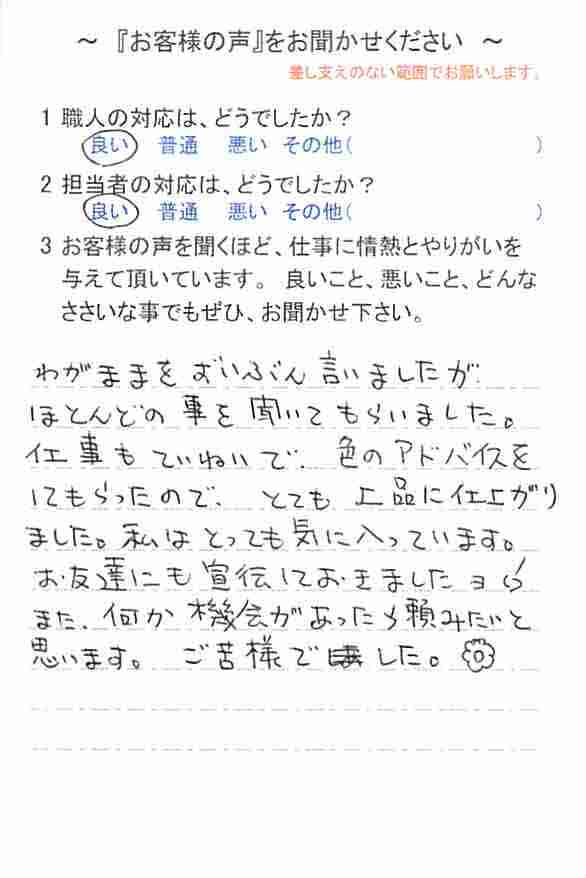 ～ 『お客様の声』をお聞かせください ～
差し支えのない範囲でお願いします。
1 職人の対応は、どうでしたか？
良い 普通 悪い その他( )
2 担当者の対応は、どうでしたか？
良い 普通 悪い その他( )
3 お客様の声を聞くほど、仕事に情熱とやりがいを
与えて頂いています。 良いこと、悪いこと、どんな
ささいな事でもぜひ、お聞かせ下さい。
わがままをずいぶん言いましたが、
ほとんどの事を聞いてもらいました。
仕事もていねいで、色のアドバイスを
してもらったので、とても上品に仕上がり
ました。私はとっても気に入っています。
お友達にも宣伝しておきましたヨ
また、何か機会があったら頼みたいと
思います。 ご苦様でした。